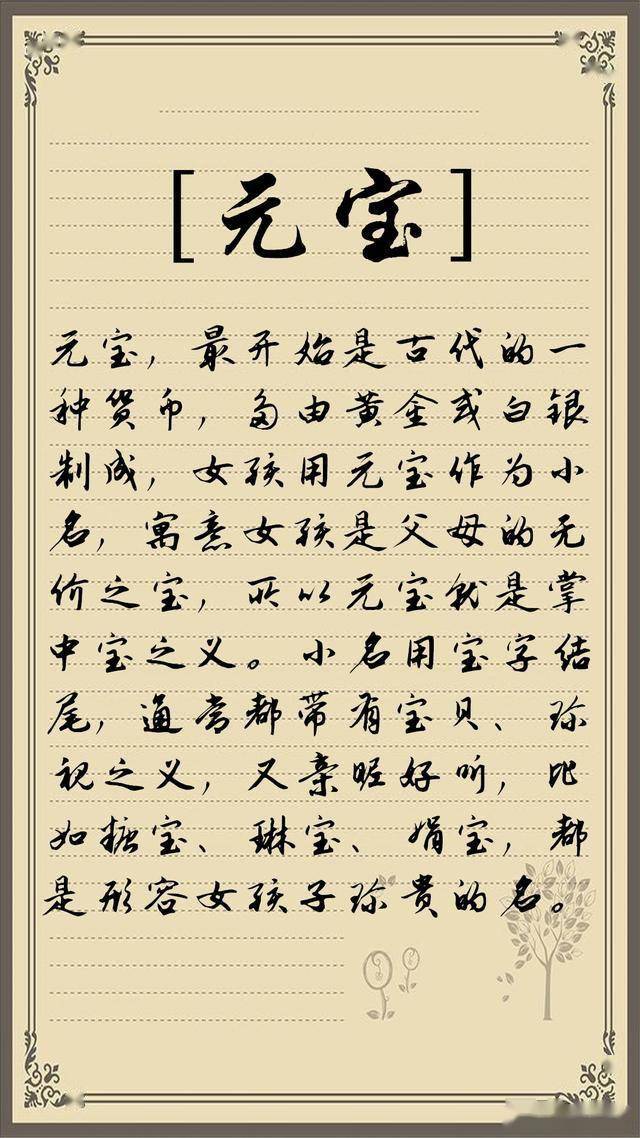 [元宝]
元宝，最开始是古代的一
种货币，多由黄金或白银
制成，女孩用元宝作为小
名，寓意女孩是父母的无
价之宝，所以元宝就是掌
中宝之义。小名用宝字结
尾，通常都带有宝贝、珍
视之义，又亲昵好听，比
如糖宝、琳宝、娟宝，都
是形容女孩子珍贵的名。